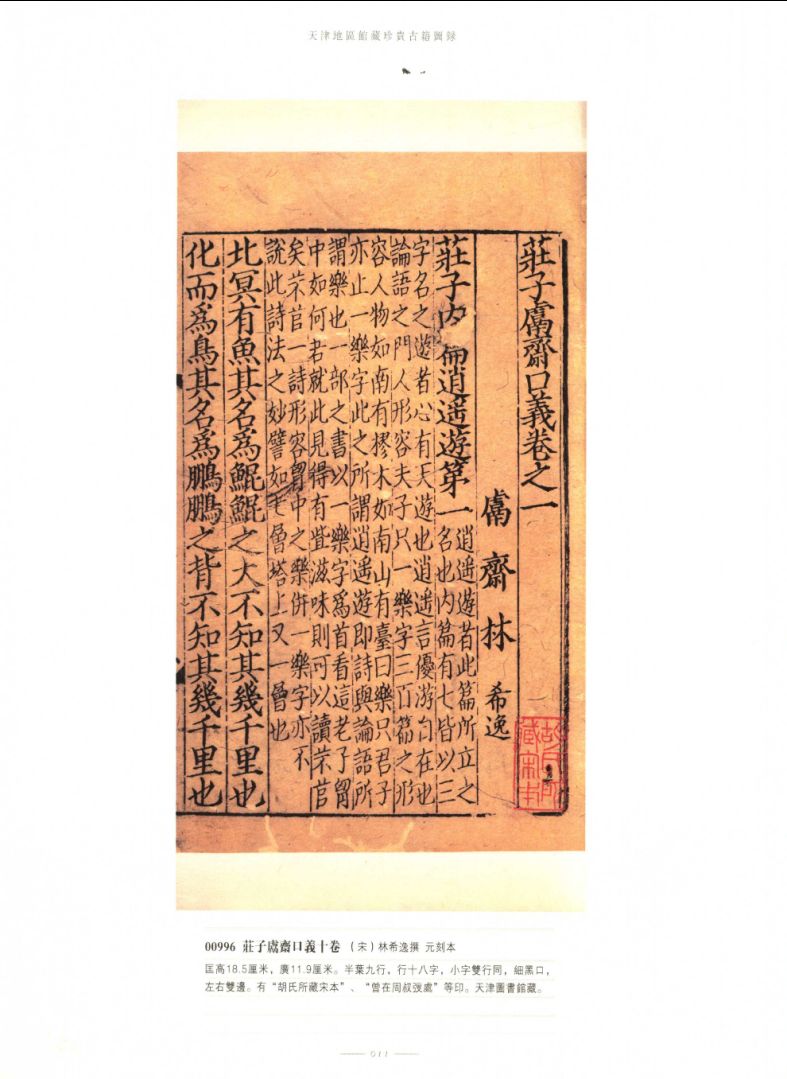 天津地區館藏珍貴古籍圖録
莊子鬳齋口義卷之一
鬳齋林希逸
莊子内篇逍遥遊第一
逍遥遊者此篇所立之
名也内篇有七皆以三
字名之遊者心有天遊也逍遥言優游自在也
論語之門人形容夫子只一樂字三百篇之形
容人物如南有樛木如南山有臺曰樂只君子
亦止一樂字此之所謂逍遥遊即詩與論語所
謂樂也一部之書以一樂字爲首看這老子胷
中如何若就此見得有些滋味則可以讀芣苢
矣芣苢一詩形容胷中之樂併一樂字亦不
說此詩法之妙譬如七層塔上又一層也
北冥有魚其名爲鯤鯤之大不知其幾千里也
化而爲鳥其名爲鵬鵬之背不知其幾千里也
胡氏所
藏宋本
00996 莊子鬳齋口義十卷 （宋）林希逸撰 元刻本
匡高18.5厘米，廣11.9厘米。半葉九行，行十八字，小字雙行同，細黑口，
左右雙邊。有“胡氏所藏宋本”、“曾在周叔弢處”等印。天津圖書館藏。